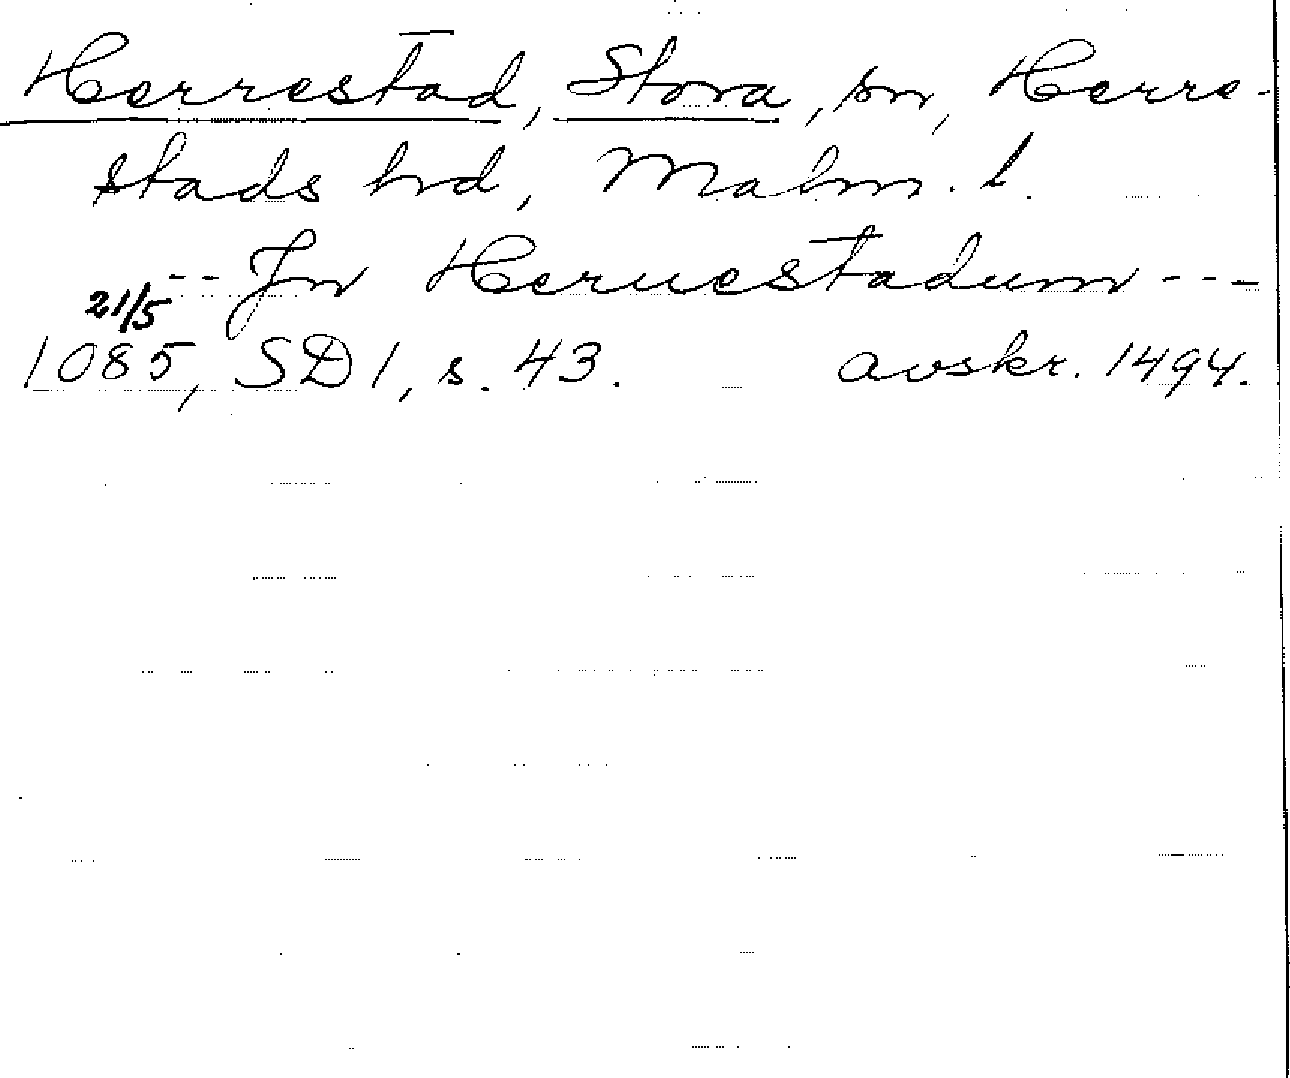 Herrestad, Stora, sn, Herre-
stads hd, Malm. l.
-- Jn Heruestadum ---
21/5
1085, SD 1, s. 43. avskr. 1494.